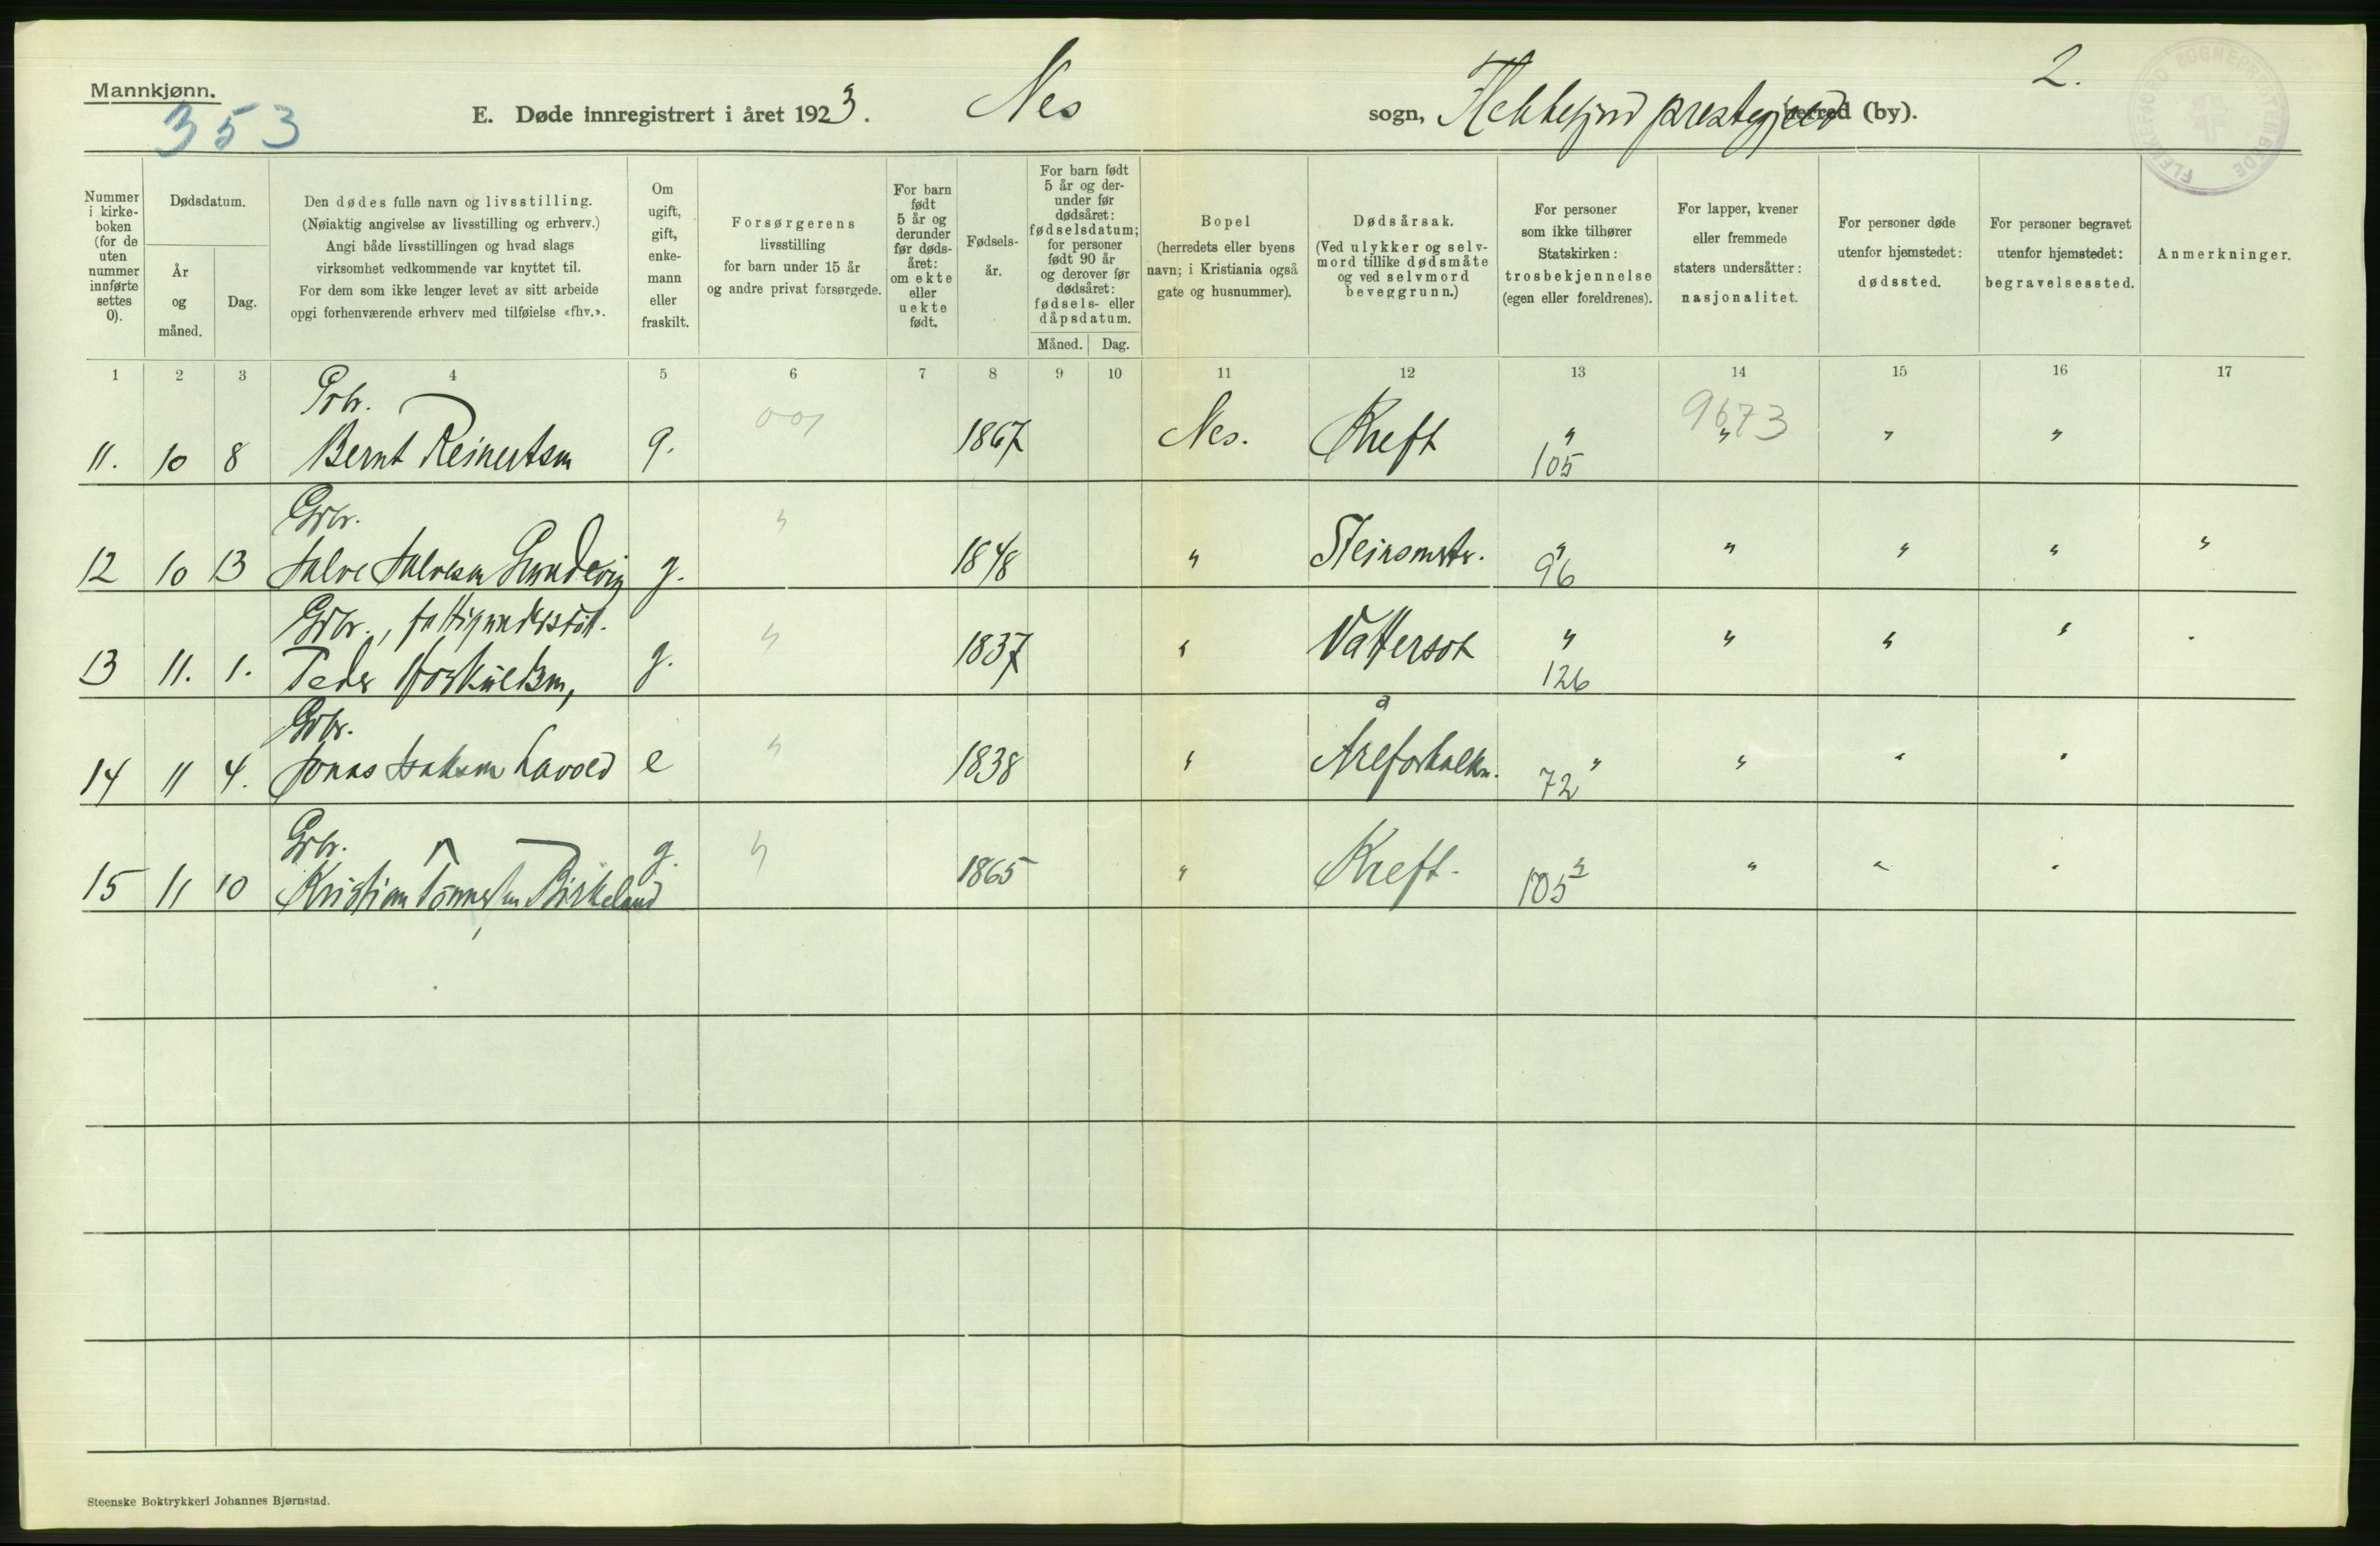 Mannkjønn.
353
E. Døde innregistrert i året 1923. Nes sogn, prestegjeld herred (by).
2.
FLEKKEFJORD SOGNEPRESTEMBEDE
Nummer i kirke- boken (for de uten nummer innførte settes 0).
Dødsdatum.
År og måned.
Dag.
Den dødes fulle navn og livsstilling.
(Nøiaktig angivelse av livsstilling og erhverv.)
Angi både livsstillingen og hvad slags
virksomhet vedkommende var knyttet til.
For dem som ikke lenger levet av sitt arbeide
opgi forhenværende erhverv med tilføielse «fhv.».
Om ugift, gift, enke- mann eller fraskilt.
Forsørgerens
livsstilling
for barn under 15 år
og andre privat forsørgede.
For barn født 5 år og derunder før døds- året: om ekte eller uekte født.
Fødsels- år.
For barn født 5 år og der- under før dødsåret: fødselsdatum; for personer født 90 år og derover før dødsåret: fødsels- eller dåpsdatum.
Måned. Dag.
Bopel
(herredets eller byens
navn; i Kristiania også
gate og husnummer).
Dødsårsak.
(Ved ulykker og selv-
mord tillike dødsmåte
og ved selvmord
beveggrunn.)
For personer
som ikke tilhører
Statskirken:
trosbekjennelse
(egen eller foreldrenes).
For lapper, kvener
eller fremmede
staters undersåtter:
nasjonalitet.
For personer døde
utenfor hjemstedet:
dødssted.
For personer begravet
utenfor hjemstedet:
begravelsessted.
Anmerkninger.
1 2 3 4 5 6 7 8 9 10 11 12 13 14 15 16 17
11. 10 8 Bernt Reinertsen g. 001 1867 Nes. Kreft " 105 9673 " " "
Gbr.
12 10 13 Salve Salvesen g. " 1848 " 96 " " " "
Gbr.,
13 11. 1. Peder g. " 1837 " Vattersot " 126 " " "
Gbr.
14 11 4. Jonas Isaksen Lavold e " 1838 " Åreforkalkn. 72 " " " "
Gbr.
15 11 10 Kristian Tønnessen Birkeland g. " 1865 " Kreft. 105 " " " "
Steenske Boktrykkeri Johannes Bjørnstad.